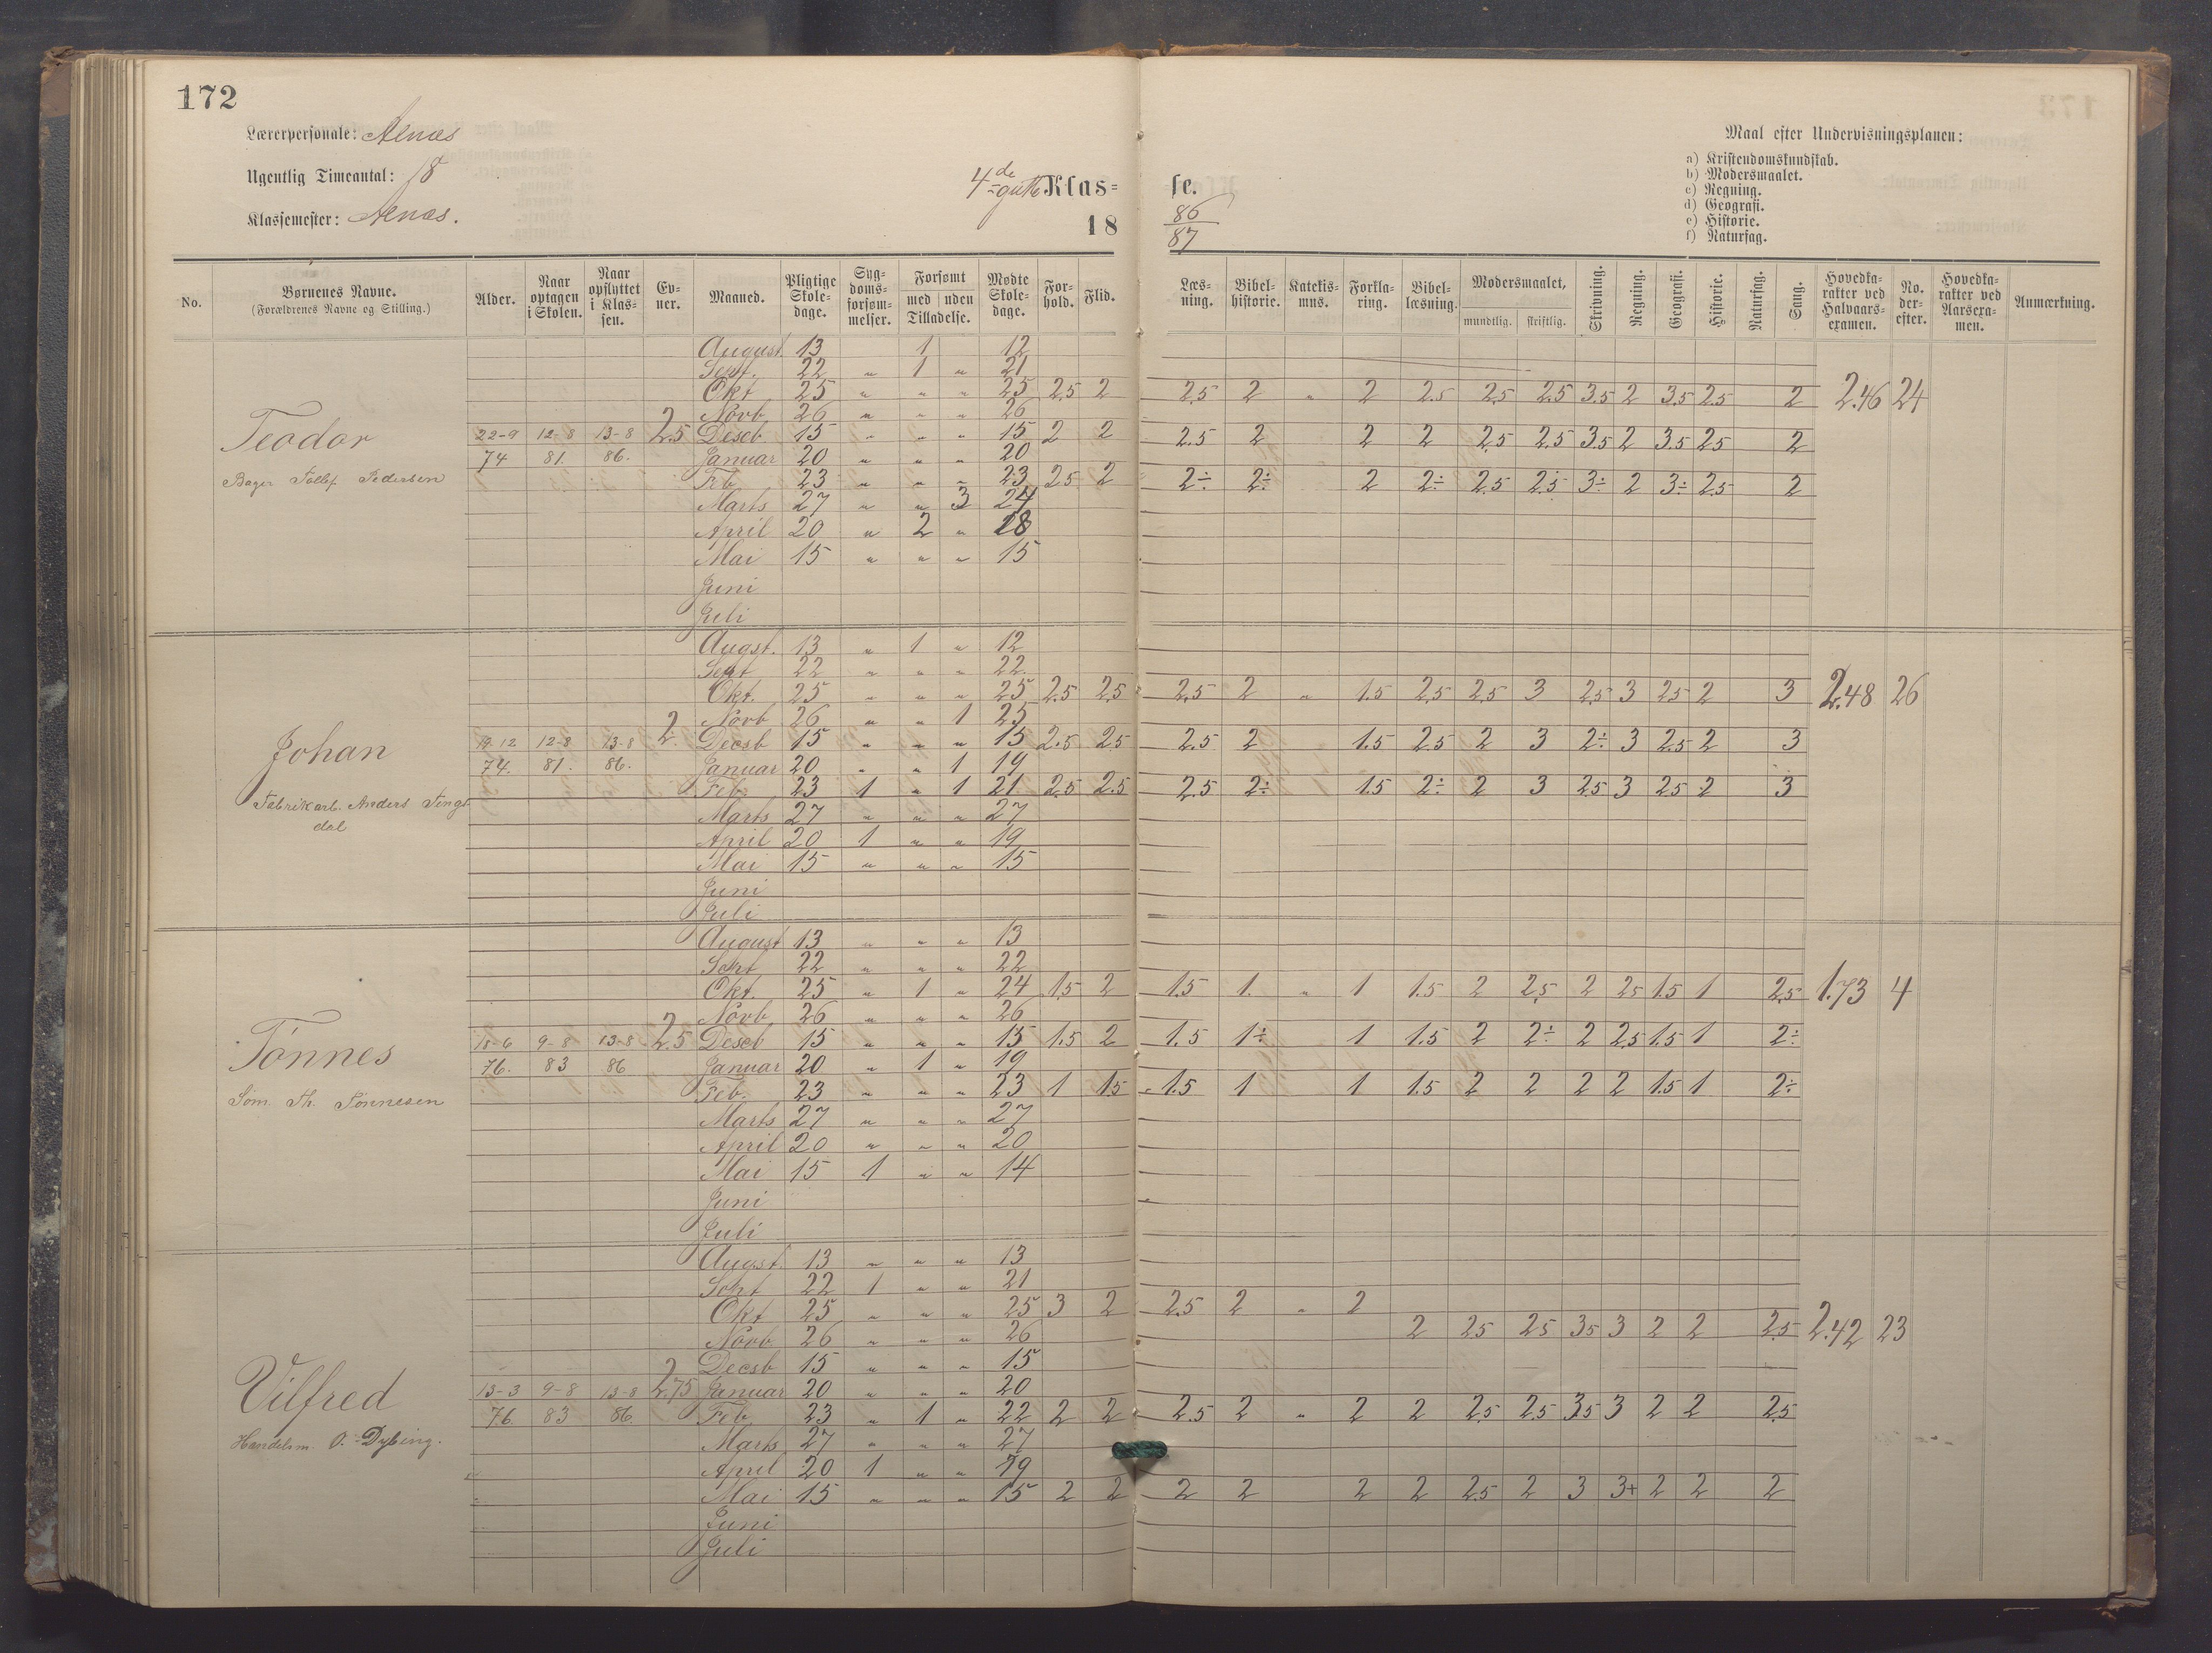 172
Lærerpersonale: Aenæs
Ugentlig Timeantal: 18
Klassemester: Aenæs.
4de gutte Klas= se.
18 86/87
Maal efter Undervisningsplanen:
a) Kristendomskundskab.
b) Modersmaalet.
c) Regning.
d) Geografi.
e) Historie.
f) Naturfag.
No. Børnenes Navne. (Forældrenes Navne og Stilling.) Alder. Naar optagen i Skolen. Naar opflyttet i Klassen. Evner. Maaned. Pligtige Skoledage. Sygdomsforsømmelser. Forsømt med uden Tilladelse. Mødte Skoledage. Forhold. Flid. Læsning. Bibelhistorie. Katekismus. Forklaring. Bibellæsning. Modersmaalet, mundtlig. skriftlig. Skrivning. Regning. Geografi. Historie. Naturfag. Sang. Hovedkarakter ved Halvaarsexamen. No. derefter. Hovedkarakter ved Aarsexamen. Anmærkning.
Teodor
Bager Tollef Pedersen
22-9 74 12-8 81. 13-8 86. 2.5
August 13 1 12
Sept. 22 „ 1 „ 21
Okt 25 „ „ „ 25 2.5 2 2.5 2 „ 2 2.5 2.5 2.5 3.5 2 3.5 2.5 2 2.46 24
Novb 26 „ „ „ 26
Deseb 15 „ „ „ 15 2 2 2.5 2 2 2 2.5 2.5 3.5 2 3.5 2.5 2
Januar 20 „ „ „ 20
Feb 23 „ „ „ 23 2.5 2 2÷ 2÷ 2 2÷ 2.5 2.5 3÷ 2 3÷ 2.5 2
Marts 27 „ „ 3 24
April 20 „ 2 „ 18
Mai 15 „ „ „ 15
Juni
Juli
Johan
Fabrikarb. Anders Tengsdal
19-12 74. 12-8 81. 13-8 86. 2.
Augst. 13 „ 1 „ 12
Sept 22 „ „ „ 22.
Okt. 25 „ „ „ 25 2.5 2.5 2.5 2 „ 1.5 2.5 2.5 3 2.5 3 2.5 2 3 2.48 26
Novb 26 „ „ 1 25
Decsb 15 „ „ „ 15 2.5 2.5 2.5 2 1.5 2.5 2 3 2÷ 3 2.5 2 3
Januar 20 „ „ 1 19
Feb. 23 1 „ 1 21 2.5 2.5 2.5 2÷ 1.5 2÷ 2 3 2.5 3 2.5 2 3
Marts 27 „ „ „ 27
April 20 1 „ „ 19
Mai 15 „ „ „ 15
Juni
Juli
Tønnes
Søm. Th. Tønnesen
18-6 76. 9-8 83 13-8 86 2.5
August 13 „ „ „ 13
Sept 22 „ „ „ 22
Okt. 25 „ 1 „ 24 1.5 2 1.5 1. „ 1 1.5 2 2.5 2 2.5 1.5 1 2.5 1.73 4
Novb 26 „ „ „ 26
Deseb 15 „ „ „ 15 1.5 2 1.5 1÷ 1 1.5 2 2÷ 2 2.5 1.5 1 2÷
Januar 20 „ 1 „ 19
Feb. 23 „ „ „ 23 1 1.5 1.5 1 1 1.5 2 2 2 2 1.5 1 2÷
Marts 27 „ „ „ 27
April 20 „ „ „ 20
Mai 15 1 „ „ 14
Juni
Juli
Vilfred
Handelsm. O. Dybing.
13-3 76 9-8 83 13-8 86. 2.75
Augst. 13 „ „ „ 13
Sept 22 1 „ „ 21
Okt 25 „ „ „ 25 3 2 2.5 2 „ 2
Novb 26 „ „ „ 26 2 2.5 2.5 3.5 3 2 2 2.5 2.42 23
Decsb 15 „ „ „ 15
Januar 20 „ „ „ 20
Feb 23 „ 1 „ 22 2 2 2.5 2 „ 2 2 2.5 2.5 3.5 3 2 2 2.5
Marts 27 „ „ „ 27
April 20 1 „ „ 19
Mai 15 „ „ „ 15 2 2 2 2 2 2 2.5 2 3 3+ 2 2 2
Juni
Juli